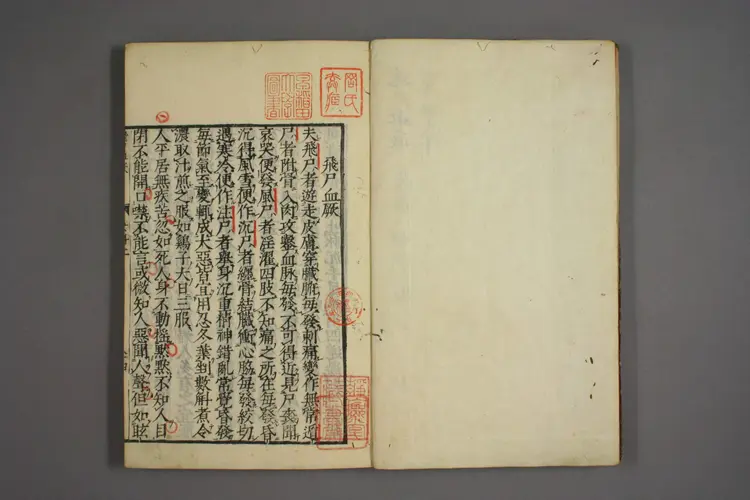 飛尸血厥
夫飛尸者遊走皮膚穿臟腑每發刺痛變作無常遁
尸者附骨入肉攻鑿血脉每發不可得近見尸喪聞
哀哭便發風尸者淫濯四肢不知痛之所在每發昏
沉得風雪便作沉尸者纏骨結臟衝心脇每發絞切
遇寒冷便作注尸者舉身沉重精神錯亂常覺昏發
每節氣至變輒成大惡皆宜用忍冬葉剉數斛煮令
濃取汁煎之服如鷄子大日三服
人平居無疾苦忽如死人身不動搖默默不知人目
閉不能開口噤不能言或微知人惡聞人聲但如眩